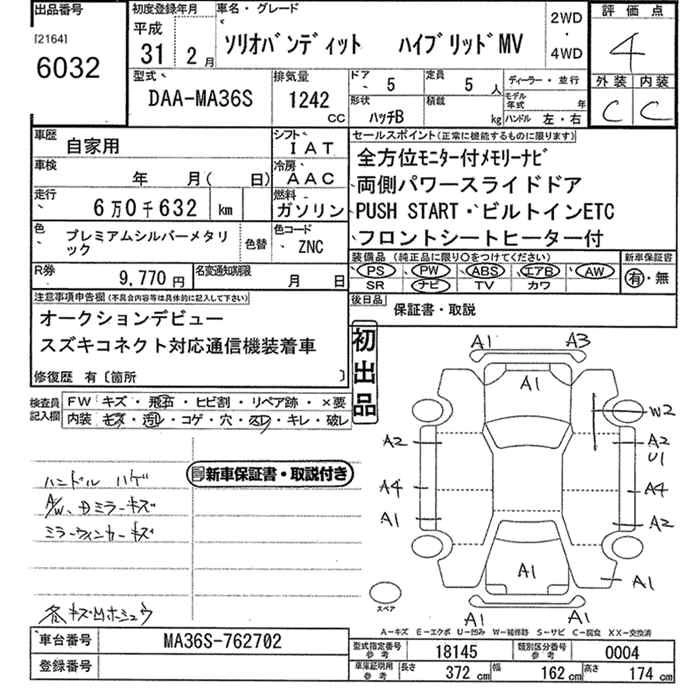 出品番号
[2164]
6032
初度登録年月
平成
31年 2月
車名・グレード
ソリオバンディット ハイブリッドMV
2WD
・
4WD
評価点
4
外装 内装
C C
型式
DAA-MA36S
排気量
1242 CC
ドア 5
定員 5 人
形状 ハッチB
積載 kg
ディーラー・並行
モデル年式 年
ハンドル 左・右
車歴 自家用
シフト IAT
車検 年 月( 日)
冷房 AAC
走行 6万0千632 km
燃料 ガソリン
色 プレミアムシルバーメタリック
色替
色コード ZNC
R券 9,770円
名変通知期限 月 日
セールスポイント(正常に機能するものに限ります)
全方位モニター付メモリーナビ
両側パワースライドドア
PUSH START・ビルトインETC
フロントシートヒーター付
装備品(純正品に限り○をつけてください)
PS PW ABS エアB AW
SR ナビ TV カワ
新車保証書
有・無
後日品 保証書・取説
注意事項申告欄(不具合内容等は具体的に記入して下さい)
オークションデビュー
スズキコネクト対応通信機装着車
修復歴 有〔箇所 〕
初出品
検査員記入欄
FW キズ・飛石・ヒビ割・リペア跡・×要
内装 キズ・汚レ・コゲ・穴・スレ・キレ・破レ
新車保証書・取説付き
ハンドル ハゲ
A/W、Dミラーキズ
ミラーウィンカーキズ
各キズ凹ホシュウ
A1 A3
A1
W2
A2 A2
U1
A4 A4
A1 A2
A1
A1
A1 A1
スペア
A-キズ E-エクボ U-凹み W-補修跡 S-サビ C-腐食 XX-交換済
車台番号 MA36S-762702
登録番号
型式指定番号 参考 18145
類別区分番号 参考 0004
車庫証明用 参考 長さ 372 cm 幅 162 cm 高さ 174 cm